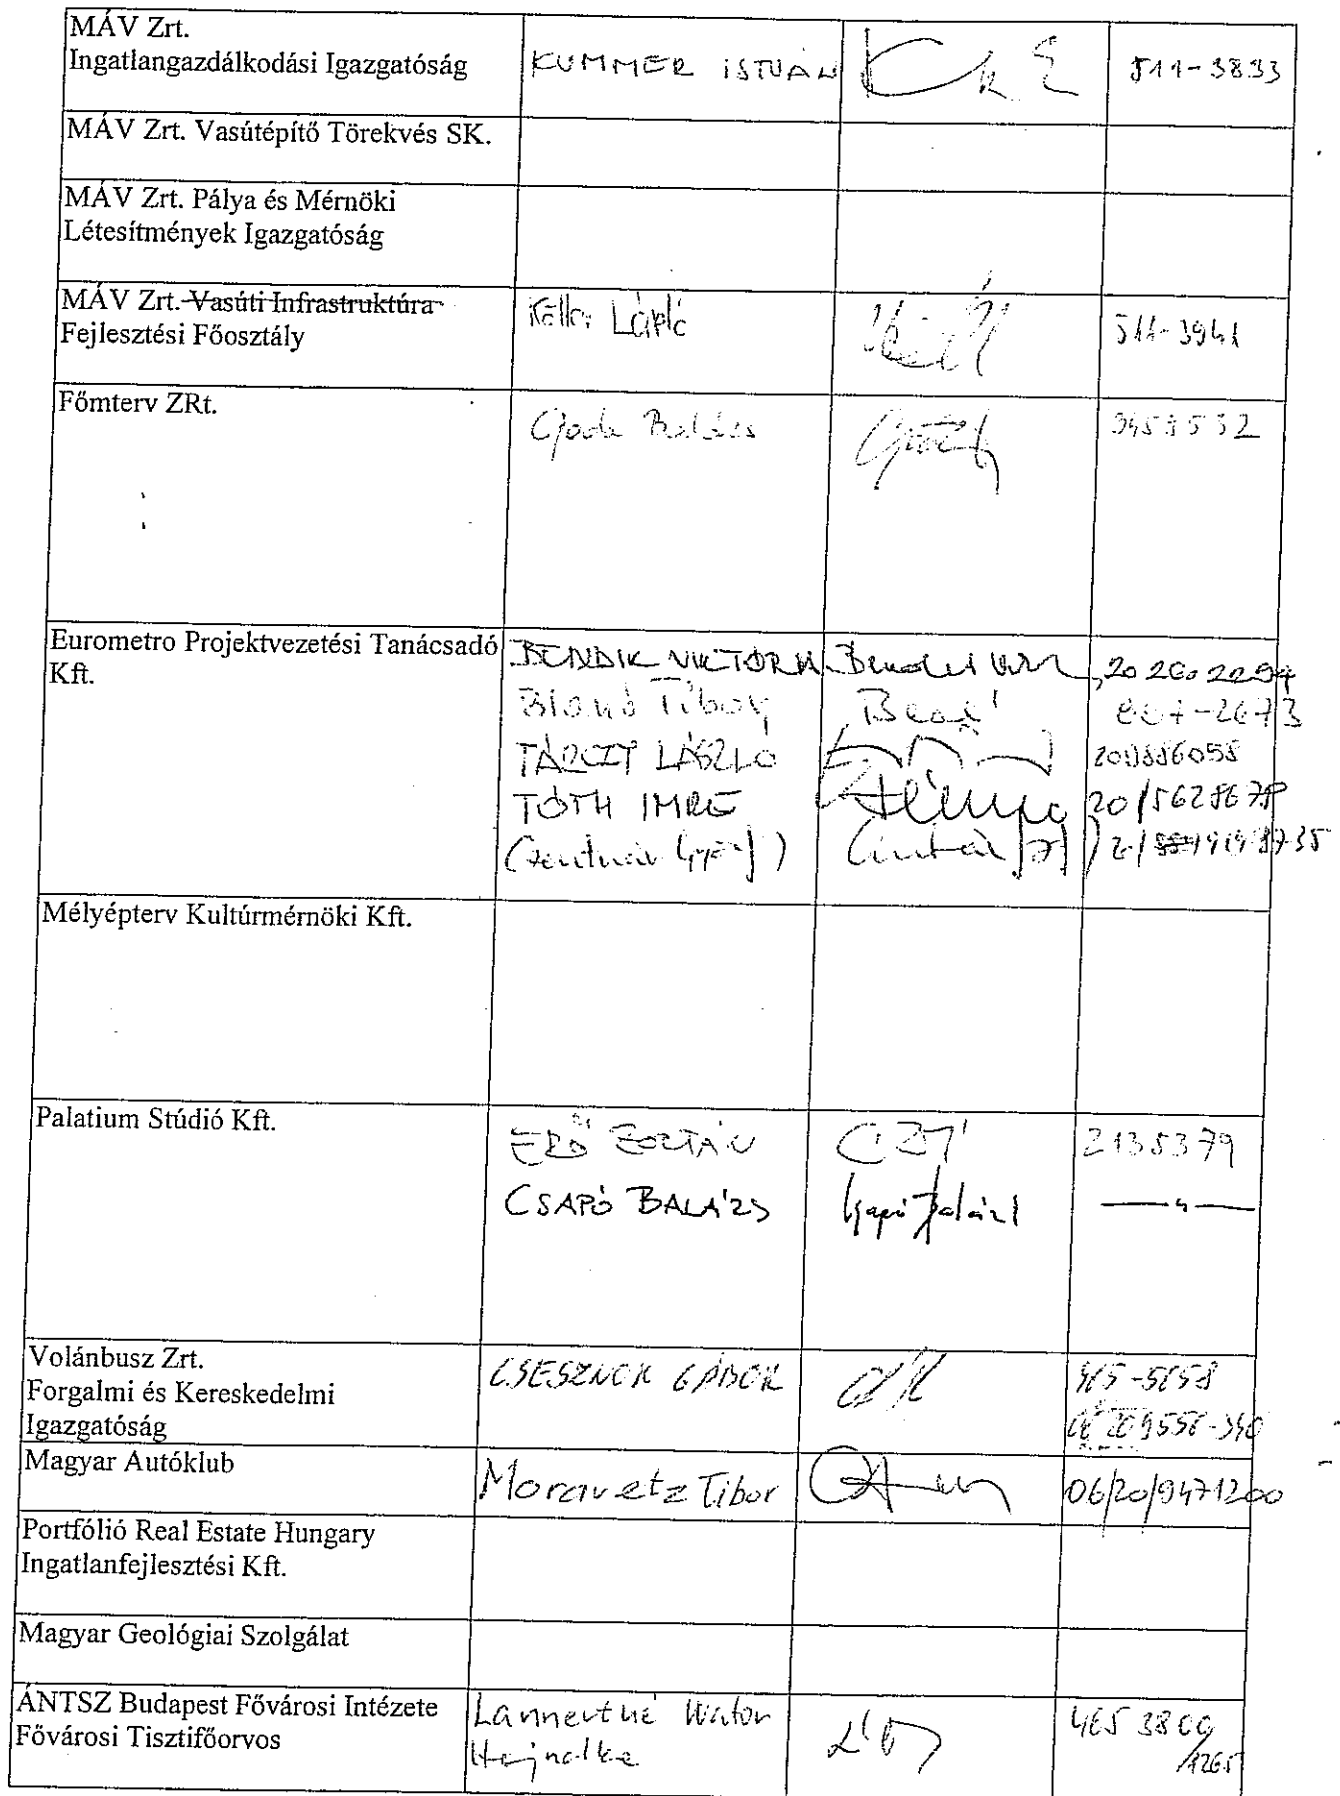 MÁV Zrt.
Ingatlangazdálkodási Igazgatóság
KUMMER ISTVÁN
511-3833
MÁV Zrt. Vasútépítő Törekvés SK.
MÁV Zrt. Pálya és Mérnöki
Létesítmények Igazgatóság
MÁV Zrt. Vasúti Infrastruktúra
Fejlesztési Főosztály
László
511-3941
Főmterv ZRt.
Balázs
Eurometro Projektvezetési Tanácsadó
Kft.
BENDIK VIKTÓRIA
Tibor
LÁSZLÓ
TÓTH IMRE
Mélyépterv Kultúrmérnöki Kft.
Palatium Stúdió Kft.
ERŐ ZOLTÁN
2135379
CSAPÓ BALÁZS Csapó Balázs
Volánbusz Zrt.
Forgalmi és Kereskedelmi
Igazgatóság
CSESZNOK GÁBOR
Magyar Autóklub
Moravetz Tibor
06/20/9471200
Portfólió Real Estate Hungary
Ingatlanfejlesztési Kft.
Magyar Geológiai Szolgálat
ÁNTSZ Budapest Fővárosi Intézete
Fővárosi Tisztifőorvos
Lannertné
Hajnalka
465 3800